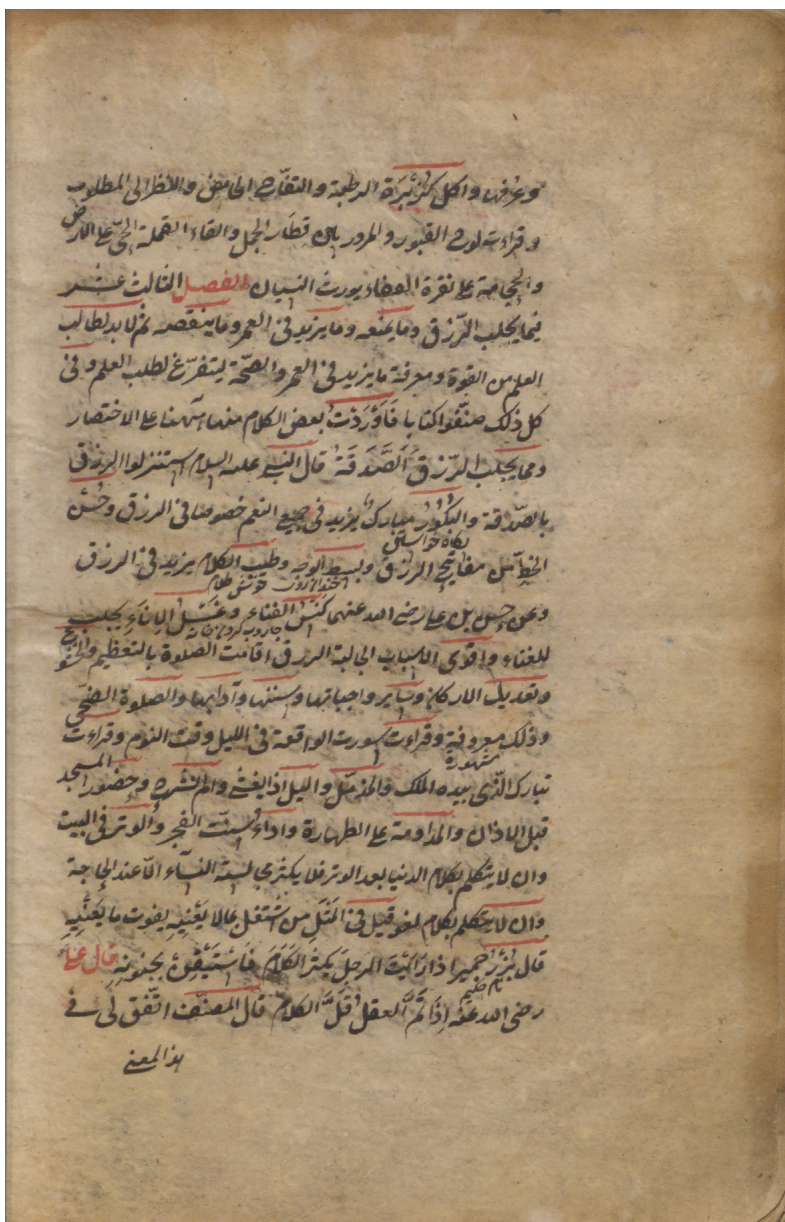 وعرفها واكل كزبرة الرطبة والتفاح الحامض والنظر الى المطلوب
وقراءت لوح القبور والمرور بين قطار الجمل والقاء القملة الحىّ على الارض
والحجامة على نقرة القفاء يورث النسيان الفصل الثالث عشر
فيما يجلب الرّزق وما يمنعه وما يزيد فى العمر وما ينقصه ثم لا بد لطالب
العلم من القوة ومعرفة ما يزيد فى العمر والصحّة ليتفرّغ لطلب العلم وفى
كل ذلك صنّفوا كتابا فَاَوْرَدْتُ بعض الكلام منها ههنا على الاختصار
ومما يجلب الرّزق اَلصَّدَقَةُ قال النبى عليه السلام استنزلوا الرزق
بالصّدقة والبكور مبارك يزيد فى جميع النعم خصوصا فى الرزق وحُسْن
پگاه خواستن
الخطّ من مفاتيح الرزق وبسط الوجه وطيب الكلام يزيد فى الرزق
خوش طلام
وعن حسن بن على رضى الله عنهما كنس الفناء وغَسْل الاِناَءِ يجلب
جاروب كردن خانه
للغناء واقوى الاسباب الجالبة الرزق اقامت الصلوة بالتعظيم والخشوع
وتعديل الاركان وساير واجباتها وسننها وآدابها والصلوة الضحى
وذلك معروفة وقراءت سورت الواقعة فى الليل وقت النوم وقراءت
مشهورة
تبارك الّذى بيده الملك والمزمّل والليل اذا يغشى والم نشرح وحضور المسجد
قبل الاذان والمداومة على الطهارة واداء سنّت الفجر والوتر فى البيت
وان لا يتكلم بكلام الدنيا بعد الوتر فلا يكثر مجالسة النسآء الاّ عند الحاجة
وان لا يتكلم بكلام لغو قيل فى المَثَل من اشتغل بمالا يَعْنِيهِ يفوت ما يَعْنِيهِ
قال بُزُرْجمهير اذا رَأَيْت الرجل يكثر الكَلَامَ فَاسْتَيْقِنْ بجنونهِ قال على
نام حكيم
رضى الله عنه اِذَا تَمَّ العقل قَلَّ الكلام قال المصنّف اتّفق لى فى
هذا المعنى